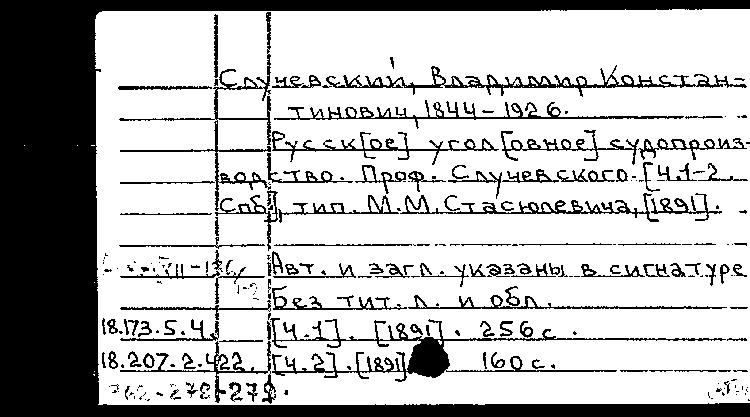 Случевский, Владимир Констан-
тинович, 1844-1926.
Русск[ое] угол[овное] судопроиз-
водство. Проф. Случевского. [Ч.1-2.
Спб], тип. М.М.Стасюлевича, [1891].
Авт. и загл. указаны в сигнатуре
Без тит. л. и обл.
18.173.5.4. [Ч.1]. [1891]. 256 с.
18.207.2.422. [Ч.2]. [1891] 160 с.